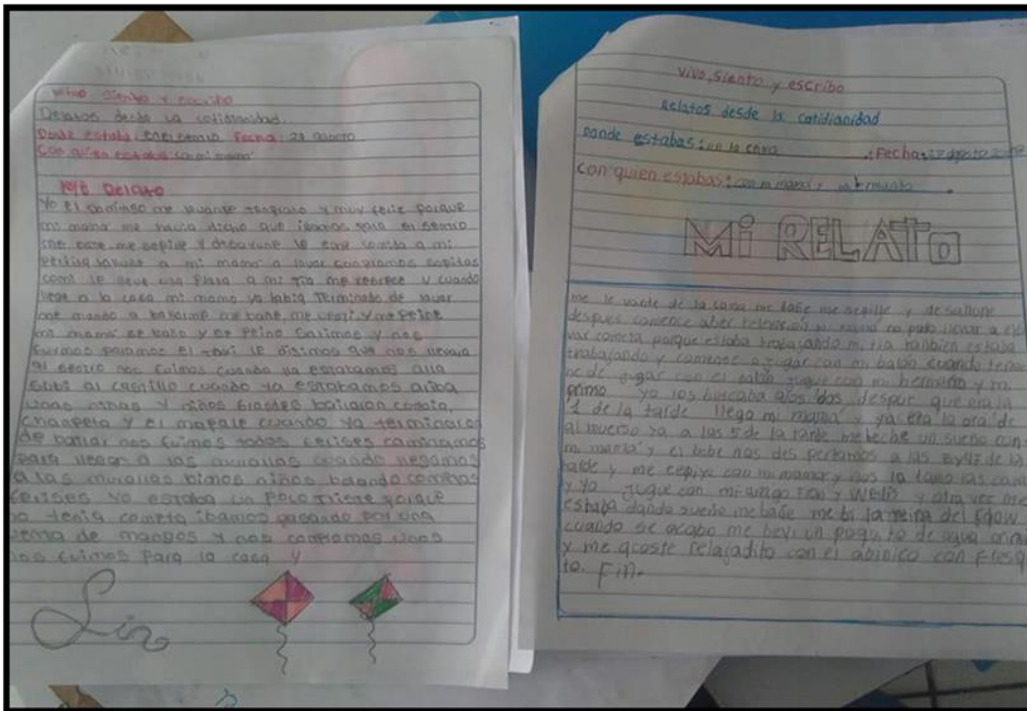 vivo siento y escribo
Relatos desde la cotidianidad.
Donde estaba: en el sentro Fecha: 27 agosto
Con quien estaba: con mi mama
Mi Relato
Yo el domingo me levante temprano y muy feliz porque
mi mama me havia dicho que ibamos para el sentro
me bañe me sepille y desayune le eche comida a mi
perrita ayude a mi mama a lavar compramos sopitas
comi le lleve una plata a mi tia me regrece y cuando
llege a la casa mi mama ya habia Terminado de lavar
me mando a bañarme me bañe, me vesti, y me peine
mi mama se baño y se Peino Salimos y nos
fuimos paramos el taxi le disimos que nos llevara
al sentro nos fuimos cuando ya estabamos alla
subi al castillo cuando ya estabamos ariba
unas niñas y niños grandes bailaron
champeta y el mapale cuando ya terminaron
de bailar nos fuimos todos felises caminamos
para llegar a las murallas cuando llegamos
a las murallas bimos niños
felises Yo estaba un Poco Triste porque
no tenia cometa ibamos pasando por una
venta de mangos y nos compramos unos
nos fuimos para la casa y
Fin
vivo, siento y escribo
Relatos desde la cotidianidad
Donde estabas: en la casa Fecha: agosto
Con quien estabas: con mi mama y mi hermanito
Mi RELATO
me le vante de la cama me bañe me sepille y desallune
despues comence aber television mi mama no pudo llevar a ele
var cometa porque estaba trabajando mi tia tanbien estaba
trabajando y comense a jugar con mi balon cuando termi
ne de jugar con el balon jugue con mi hermano y mi
primo yo los buscaba a los dos despue que era la
1 de la tarde llego mi mama y ya era la ora de
almuerso ya a las 5 de la tarde me heche un sueño con
mi mama y el bebe nos des pertamos a las de la
tarde y me cepiye con mi mama y nos la bamos las caras
y yo jugue con mi amigo y Welis y otra ves me
estaba dando sueño me bañe me bi la reina del flow
cuando se acabo me bevi un poquito de agua
y me acoste relajadito con el abinico con fresqui
to. Fin.